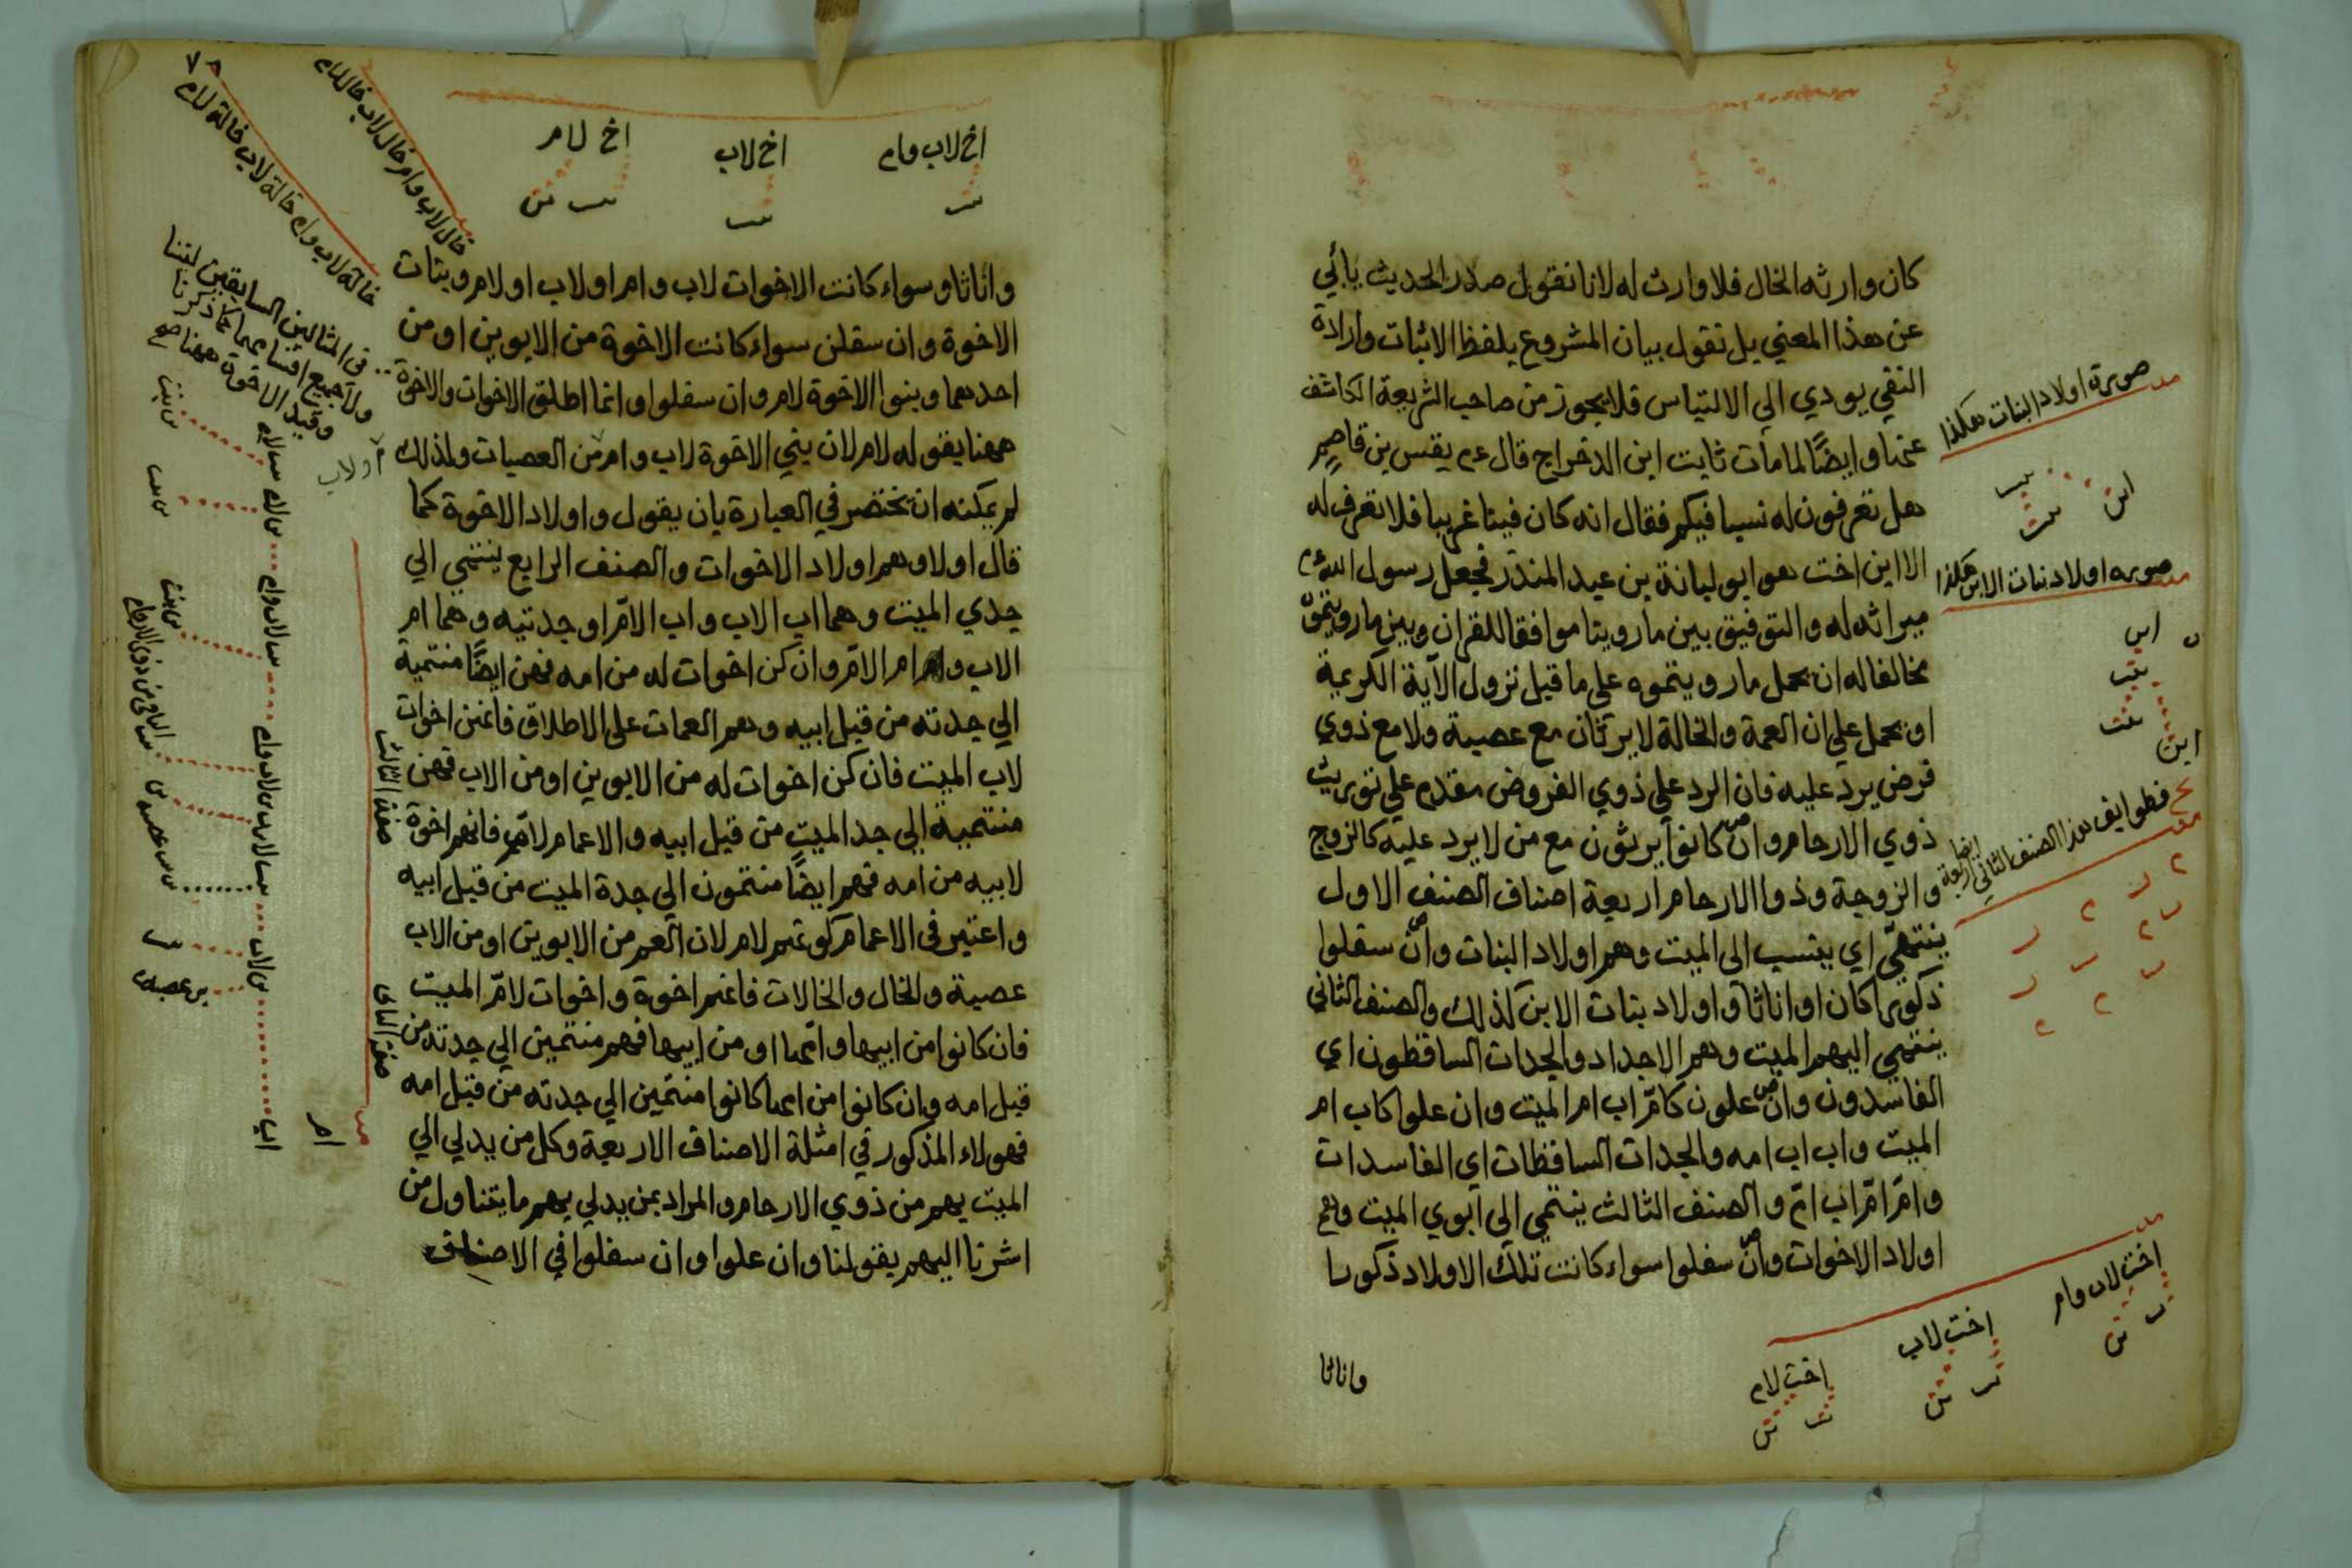 كان وارثه الخال فلا وارث له لانا نقول صدر الحديث يأبي
عن هذا المعني بل نقول بيان المشروع بلفظ الاثبات وارادة
النفي يودي الي الالتباس فلا يجوز من صاحب الشريعة الكاشف
عنها وايضًا لما مات ثابت ابن الدخراج قال ع م يقس بن قاصم
هل تعرفون له نسبا فيكم فقال انه كان فينا غريبا فلا نعرف له
الا ابن اخت هو ابو لبانة بن عبد المنذر فجعل رسول الله ع م
ميراثه له والتوفيق بين ما روينا موافقا للقران وبين ما رويتموه
مخالفا له ان يحمل ما رويتموه علي ما قبل نزول الآية الكريمة
او يحمل علي ان العمة والخالة لا يرثان مع عصبة ولا مع ذوي
فرض يرد عليه فان الرد علي ذوي الفروض مقدم علي توريث
ذوي الارحام وان كانوا يرثون مع من لا يرد عليه كالزوج
والزوجة وذوا الارحام اربعة اصناف الصنف الاول
ينتهي اي ينتسب الى الميت وهم اولاد البنات وان سفلوا
ذكورا كان او اناثا واولاد بنات الابن كذلك والصنف الثاني
ينتهي اليهم الميت وهم الاجداد والجدات الساقطون اي
الفاسدون وان علون كامّ اب ام الميت وان علوا كاب ام
الميت واب اب امه والجدات الساقطات اي الفاسدات
وامّ امّ اب امّ والصنف الثالث ينتمي الى ابوي الميت وهم
اولاد الاخوات وان سفلوا سواء كانت تلك الاولاد ذكورا
واناثا
صورة اولاد البنات هكذا
ابن بنت
صورة اولاد بنات الابن هكذا
ابن
بنت
بنت
ابن
فطوايف هذا الصنف الثاني ايضا اربعة
اخت لاب وام
اخت لاب
اخت لام
٧٨
اخ لاب وام اخ لاب اخ لام
خال لاب وام خال لاب خال لام
خالة لاب وام خالة لاب خالة لام
واناثا وسواء كانت الاخوات لاب وام او لاب او لام وبنات
الاخوة وان سفلن سواء كانت الاخوة من الابوين او من
احدهما وبنوا الاخوة لام وان سفلوا وانما اطلق الاخوات والاخوة
ههنا بقوله لام لان بني الاخوة لاب وام من العصبات ولذلك
لم يمكنه ان يختصر في العبارة بان يقول واولاد الاخوة كما
قال اولا وهم اولاد الاخوات والصنف الرابع ينتمي الي
جدي الميت وهما اب الاب واب الامّ او جدتيه وهما ام
الاب وام الامّ وان كن اخوات له من امه فهن ايضًا منتمية
الي جدته من قبل ابيه وهم العمات على الاطلاق فانهن اخوات
لاب الميت فان كن اخوات له من الابوين او من الاب فهن
منتمية الي جد الميت من قبل ابيه والاعمام لام فانهم اخوة
لابيه من امه فهم ايضًا منتمون الي جدة الميت من قبل ابيه
واعتبر في الاعمام كونهم لام لان العم من الابوين او من الاب
عصبة والخال والخالات فانهم اخوة واخوات لامّ الميت
فان كانوا من ابيها وامها او من ابيها فهم منتمين الي جدته من
قبل امه وان كانوا من امها كانوا منتمين الي جدته من قبل امه
فهولاء المذكور في امثلة الاصناف الاربعة وكل من يدلي الي
الميت بهم من ذوي الارحام والمراد بمن يدلي بهم ما يتناول من
اشرنا اليهم بقولنا وان علوا وان سفلوا في الاصناف
في المثالين السابقين لتنا
ول جميع اقسامهما كما ذكرنا
وقيد الاخوة ههنا
او لاب
صنف الثالث
ام
اب